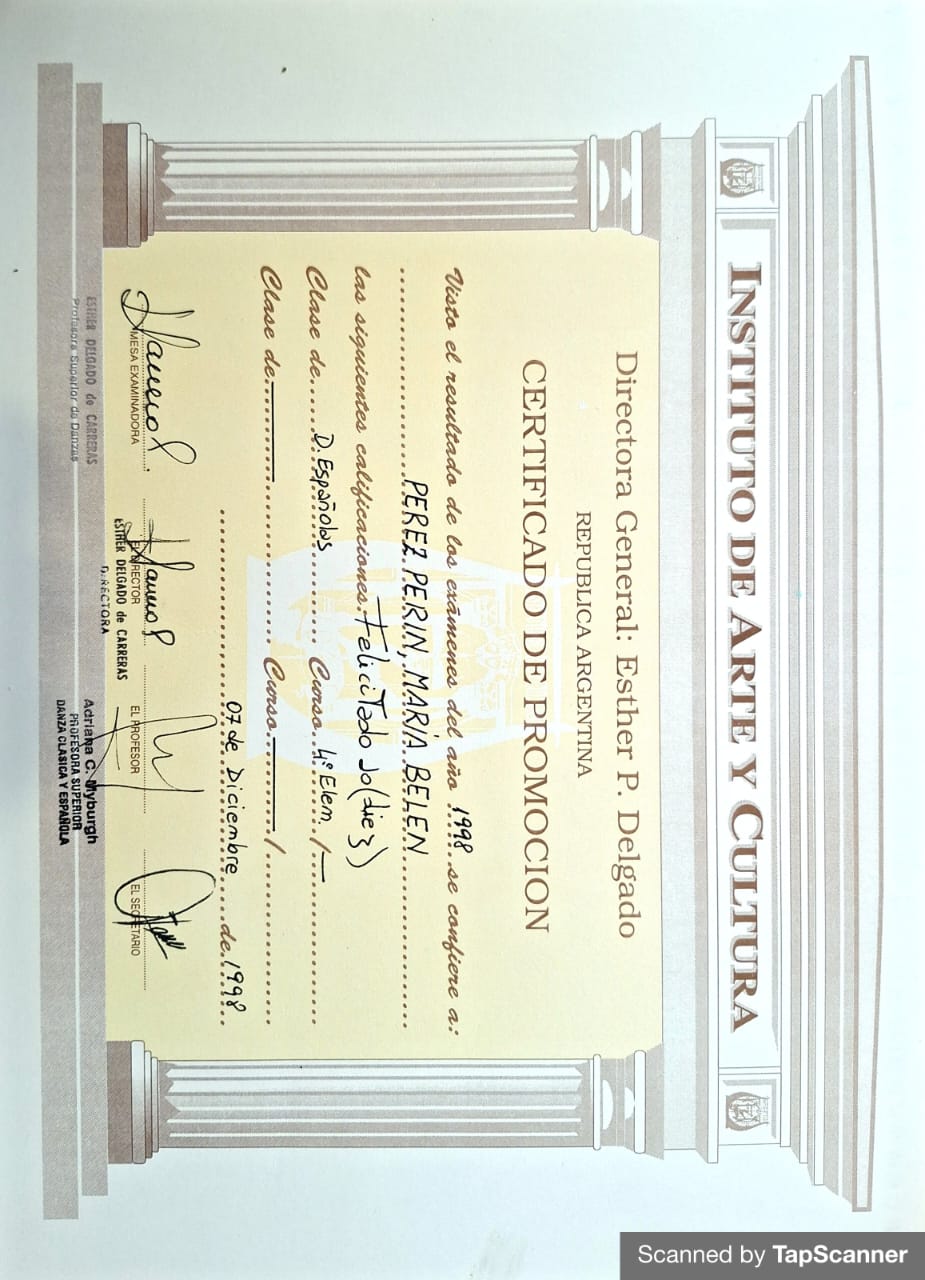 INSTITUTO DE ARTE Y CULTURA
Directora General: Esther P. Delgado
REPUBLICA ARGENTINA
CERTIFICADO DE PROMOCION
Visto el resultado de los exámenes del año 1998 se confiere a:
PEREZ PERIN, MARÍA BELEN
las siguientes calificaciones: Felicitado 10 (diez)
Clase de D. Españolas Curso 4º Elem. / —
Clase de — Curso — /
07 de Diciembre de 1998
MESA EXAMINADORA
EL DIRECTOR
EL PROFESOR
EL SECRETARIO
ESTHER DELGADO de CARRERAS
Profesora Superior de Danzas
ESTHER DELGADO de CARRERAS
DIRECTORA
Adriana C. Myburgh
PROFESORA SUPERIOR
DANZA CLASICA Y ESPAÑOLA
Scanned by TapScanner